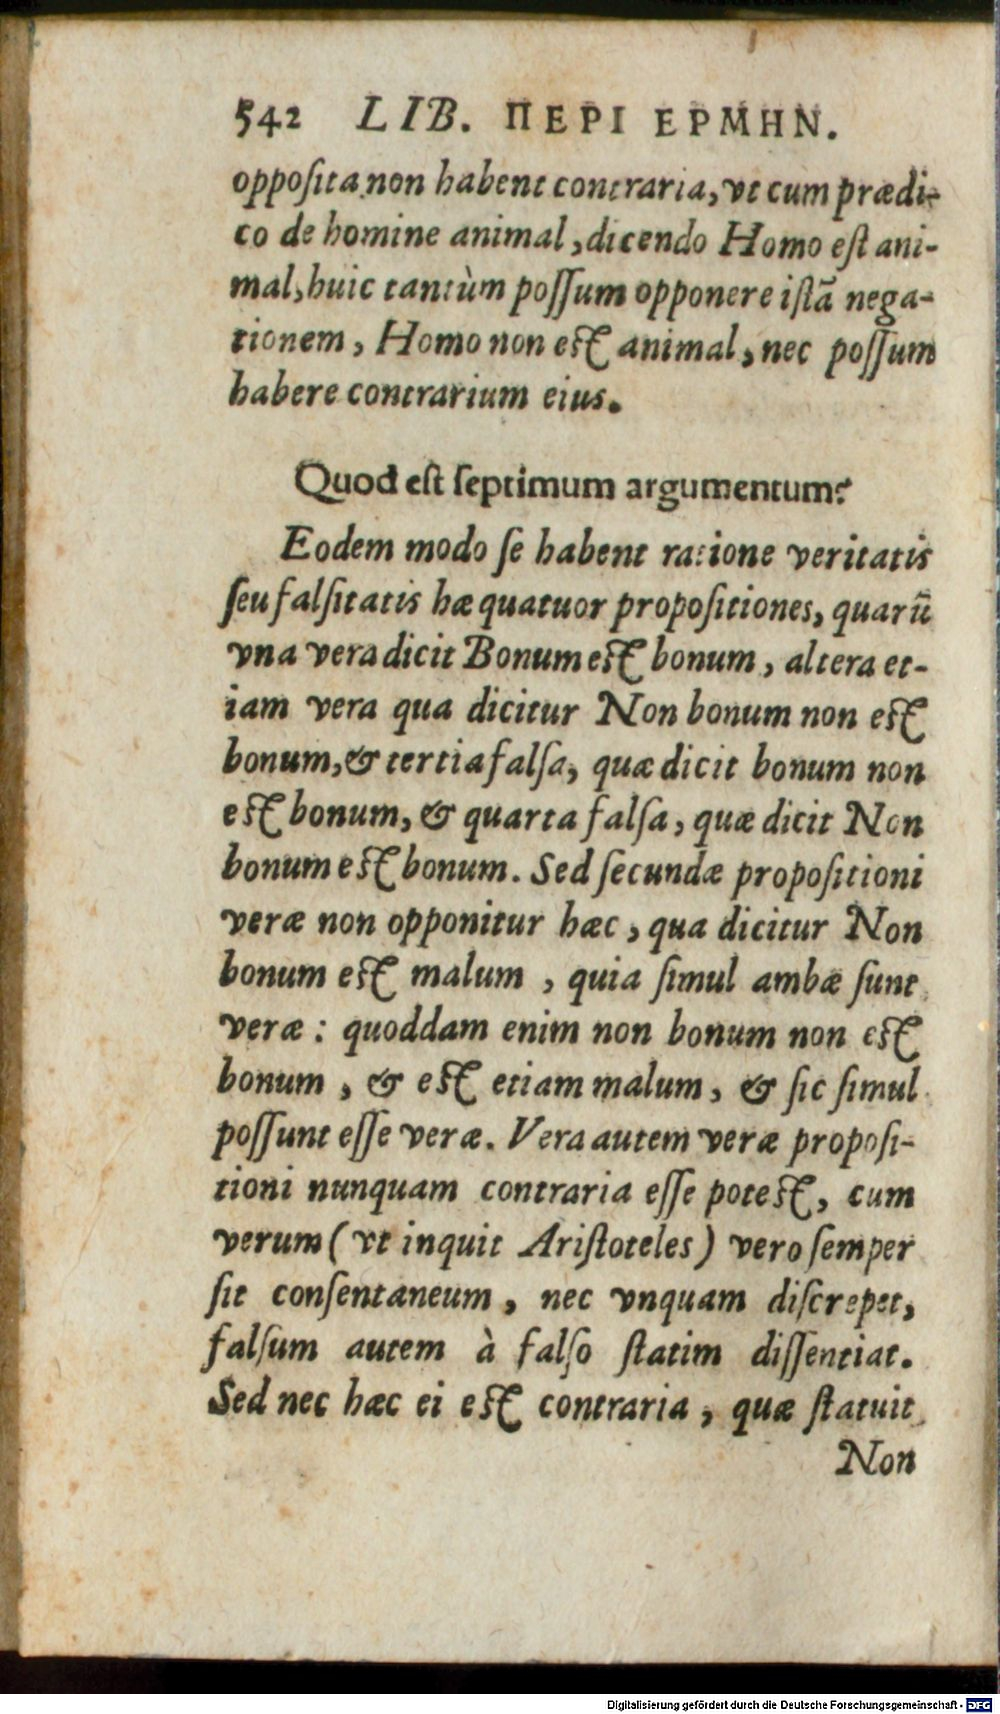 542 LIB. ΠΕΡΙ ΕΡΜΗΝ.
oppoſita non habent contraria, vt cum prædi-
co de homine animal, dicendo Homo eſt ani-
mal, huic tantùm poſſum opponere iſtã nega-
tionem, Homo non eſt animal, nec poſſum
habere contrarium eius.
Quod eſt ſeptimum argumentum?
Eodem modo ſe habent ratione veritatis
ſeu falſitatis hæ quatuor propoſitiones, quarũ
vna vera dicit Bonum eſt bonum, altera et-
iam vera qua dicitur Non bonum non eſt
bonum, & tertia falſa, quæ dicit bonum non
eſt bonum, & quarta falſa, quæ dicit Non
bonum eſt bonum. Sed ſecundæ propoſitioni
veræ non opponitur hæc, qua dicitur Non
bonum eſt malum, quia ſimul ambæ ſunt
veræ: quoddam enim non bonum non eſt
bonum, & eſt etiam malum, & ſic ſimul
poſſunt eſſe veræ. Vera autem veræ propoſi-
tioni nunquam contraria eſſe poteſt, cum
verum (vt inquit Ariſtoteles) vero ſemper
ſit conſentaneum, nec vnquam diſcrepet,
falſum autem à falſo ſtatim diſſentiat.
Sed nec hæc ei eſt contraria, quæ ſtatuit
Non
Digitalisierung gefördert durch die Deutsche Forschungsgemeinschaft - DFG